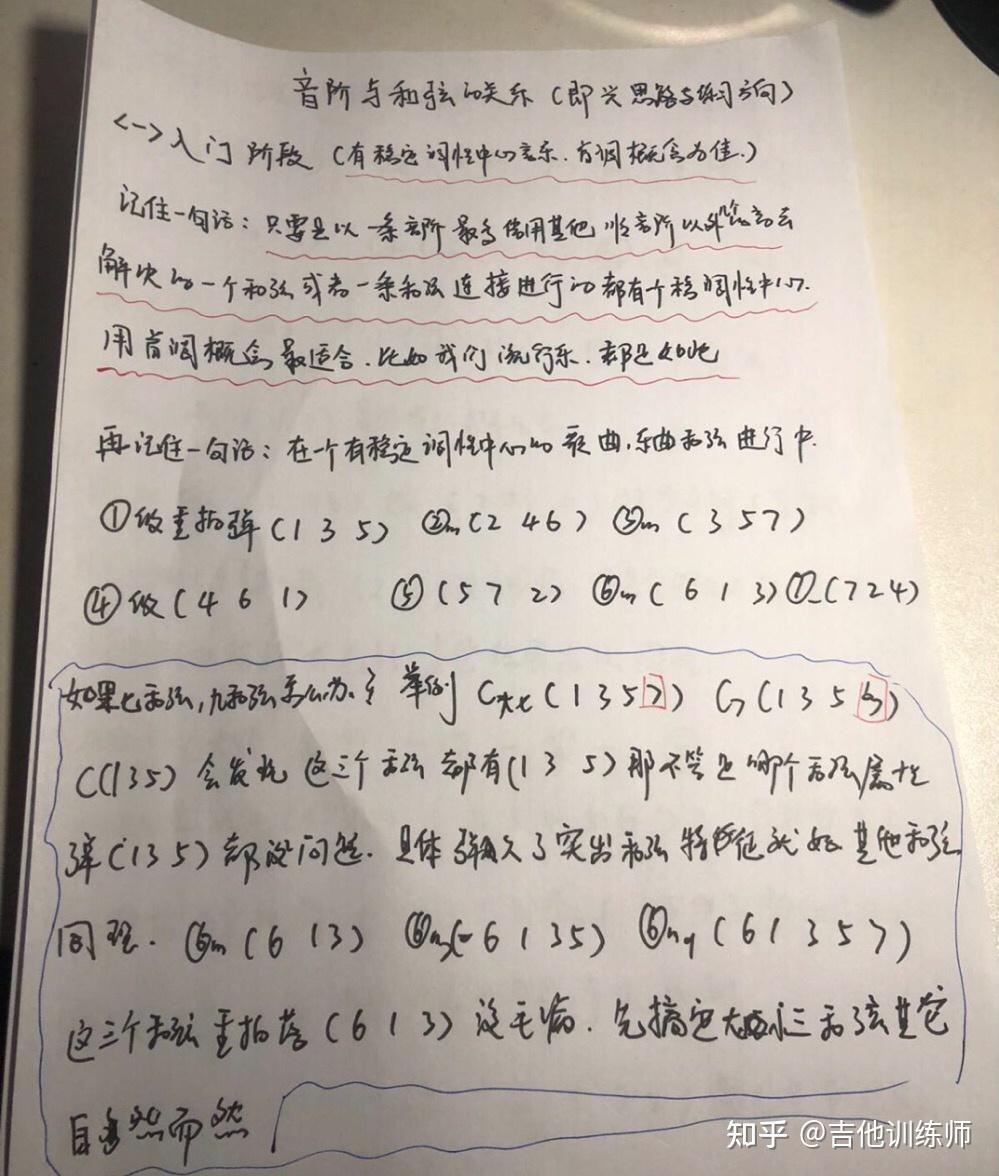 音阶与和弦的关系（即兴思路与练习方向）
<一>入门阶段（有稳定调性中心音乐.首调概念为佳.）
记住一句话：只要是以一条音阶最多借用其他顺音阶以外的音去
解决的一个和弦或者一条和弦连接进行的都有个稳调性中心.
用首调概念最适合.比如我们流行乐.都是如此
再记住一句话：在一个有稳定调性中心的歌曲,乐曲和弦进行中.
①级重拍弹（1 3 5） ②m（2 4 6） ③m（3 5 7）
④级（4 6 1） ⑤（5 7 2） ⑥m（6 1 3）⑦-（7 2 4）
如果七和弦,九和弦怎么办.举例 C大七（1 3 5 7） C7（1 3 5
C（1 3 5）会发现这三个和弦都有（1 3 5）那不管是哪个和弦属性
弹（1 3 5）都没问题.具体弹久了突出和弦特征就好其他和弦
同理. ⑥m（6 1 3） ⑥m7（6 1 3 5） ⑥m9（6 1 3 5 7）
这三个和弦重拍落（6 1 3）没毛病.先搞定大小三和弦其它
自然而然
知乎 @吉他训练师